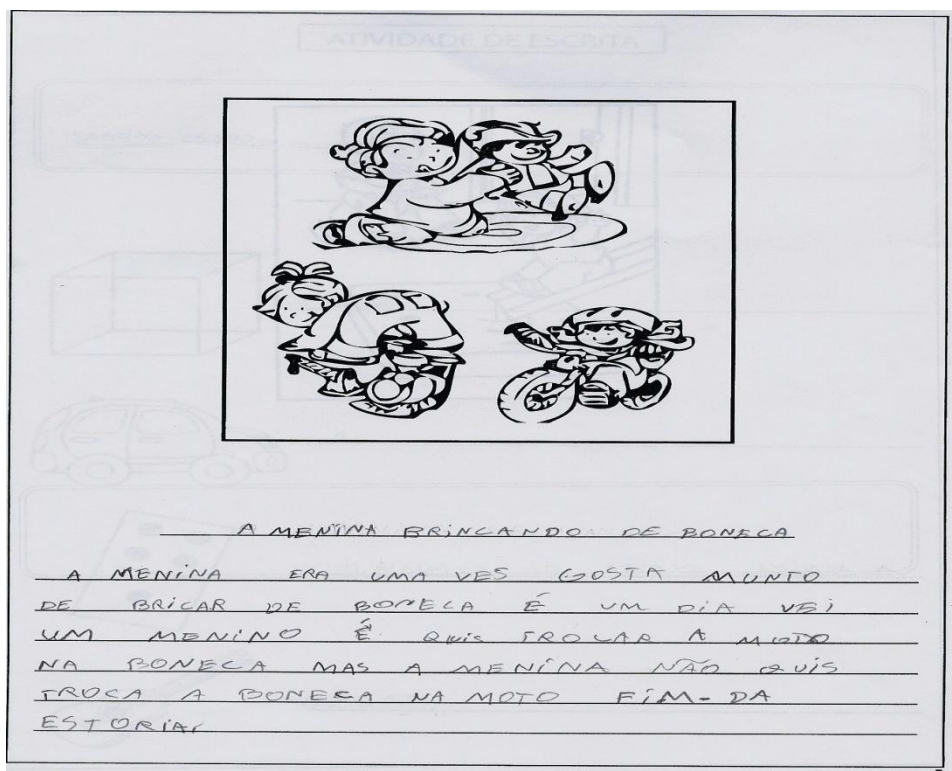 ATIVIDADE DE ESCRITA
A MENINA BRINCANDO DE BONECA
A MENINA ERA UMA VES GOSTA MUNTO
DE BRICAR DE BONECA É UM DIA VEI
UM MENINO É QUIS TROCAR A MOTO
NA BONECA MAS A MENINA NÃO QUIS
TROCA A BONECA NA MOTO FIM-DA
ESTORIA.